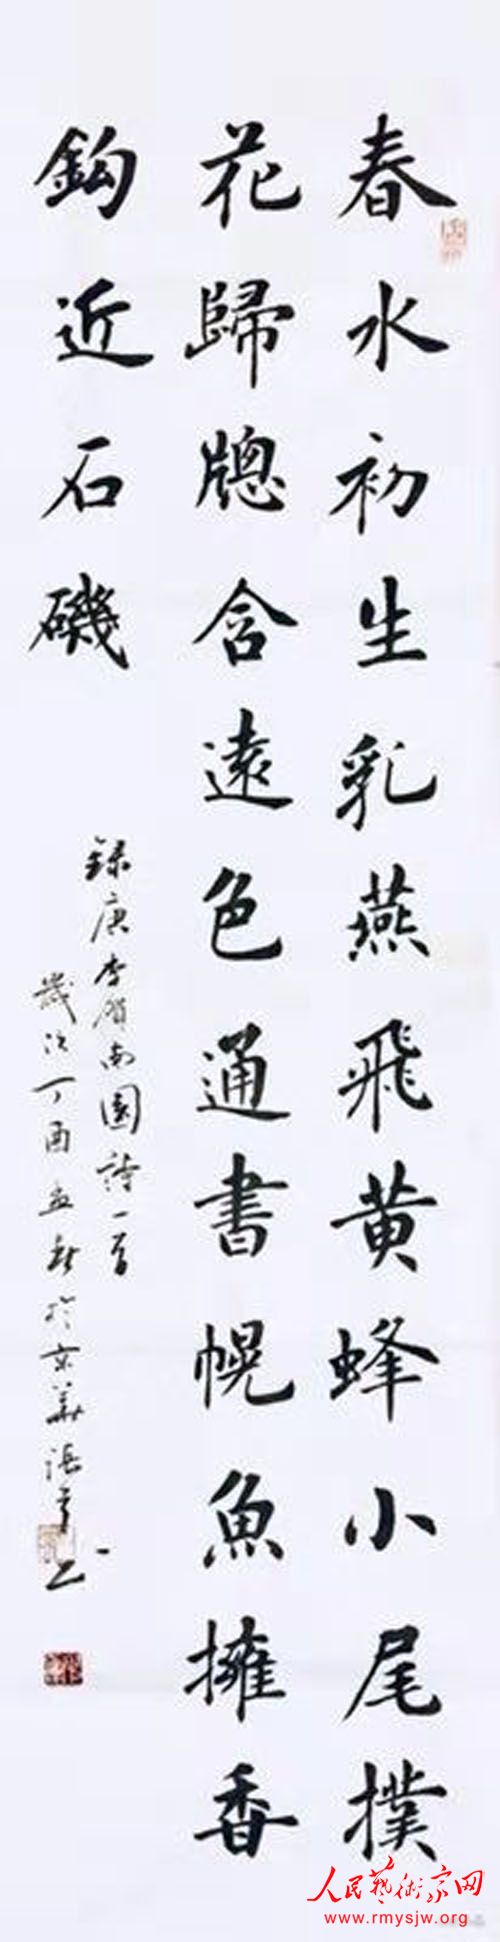 春水初生乳燕飛黄蜂小尾撲
花歸牕含遠色通書幌魚擁香
鈎近石磯
録唐李賀南園詩一首
歲次丁酉孟秋於京華張
人民藝術家网
www.rmysjw.org